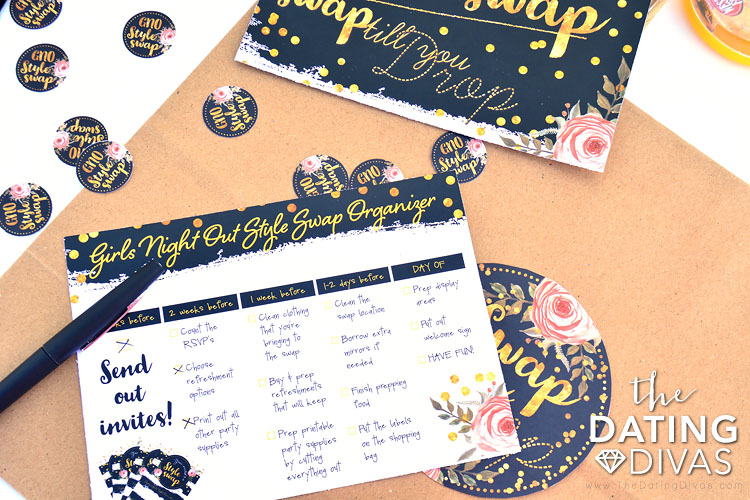 swap swap
till you
Drop
GNO
Style
swap
GNO
Style
swap
GNO
Style
swap
GNO
Style
swap
GNO
Style
swap
GNO
Style
swap
Girls Night Out Style Swap Organizer
before
X
Send
out
invites!
2 weeks before
Count the
RSVP's
X Choose
refreshment
options
X Print out all
other party
supplies
1 week before
Clean clothing
that you're
bringing to
the swap
Buy & prep
refreshments
that will keep
Prep printable
party supplies
by cutting
everything out
1-2 days before
Clean the
swap location
Borrow extra
mirrors if
needed
Finish prepping
food
Put the labels
on the shopping
bag
DAY OF
Prep display
areas
Put out
welcome sign
HAVE FUN!
swap
the
DATING
DIVAS
www.TheDatingDivas.com